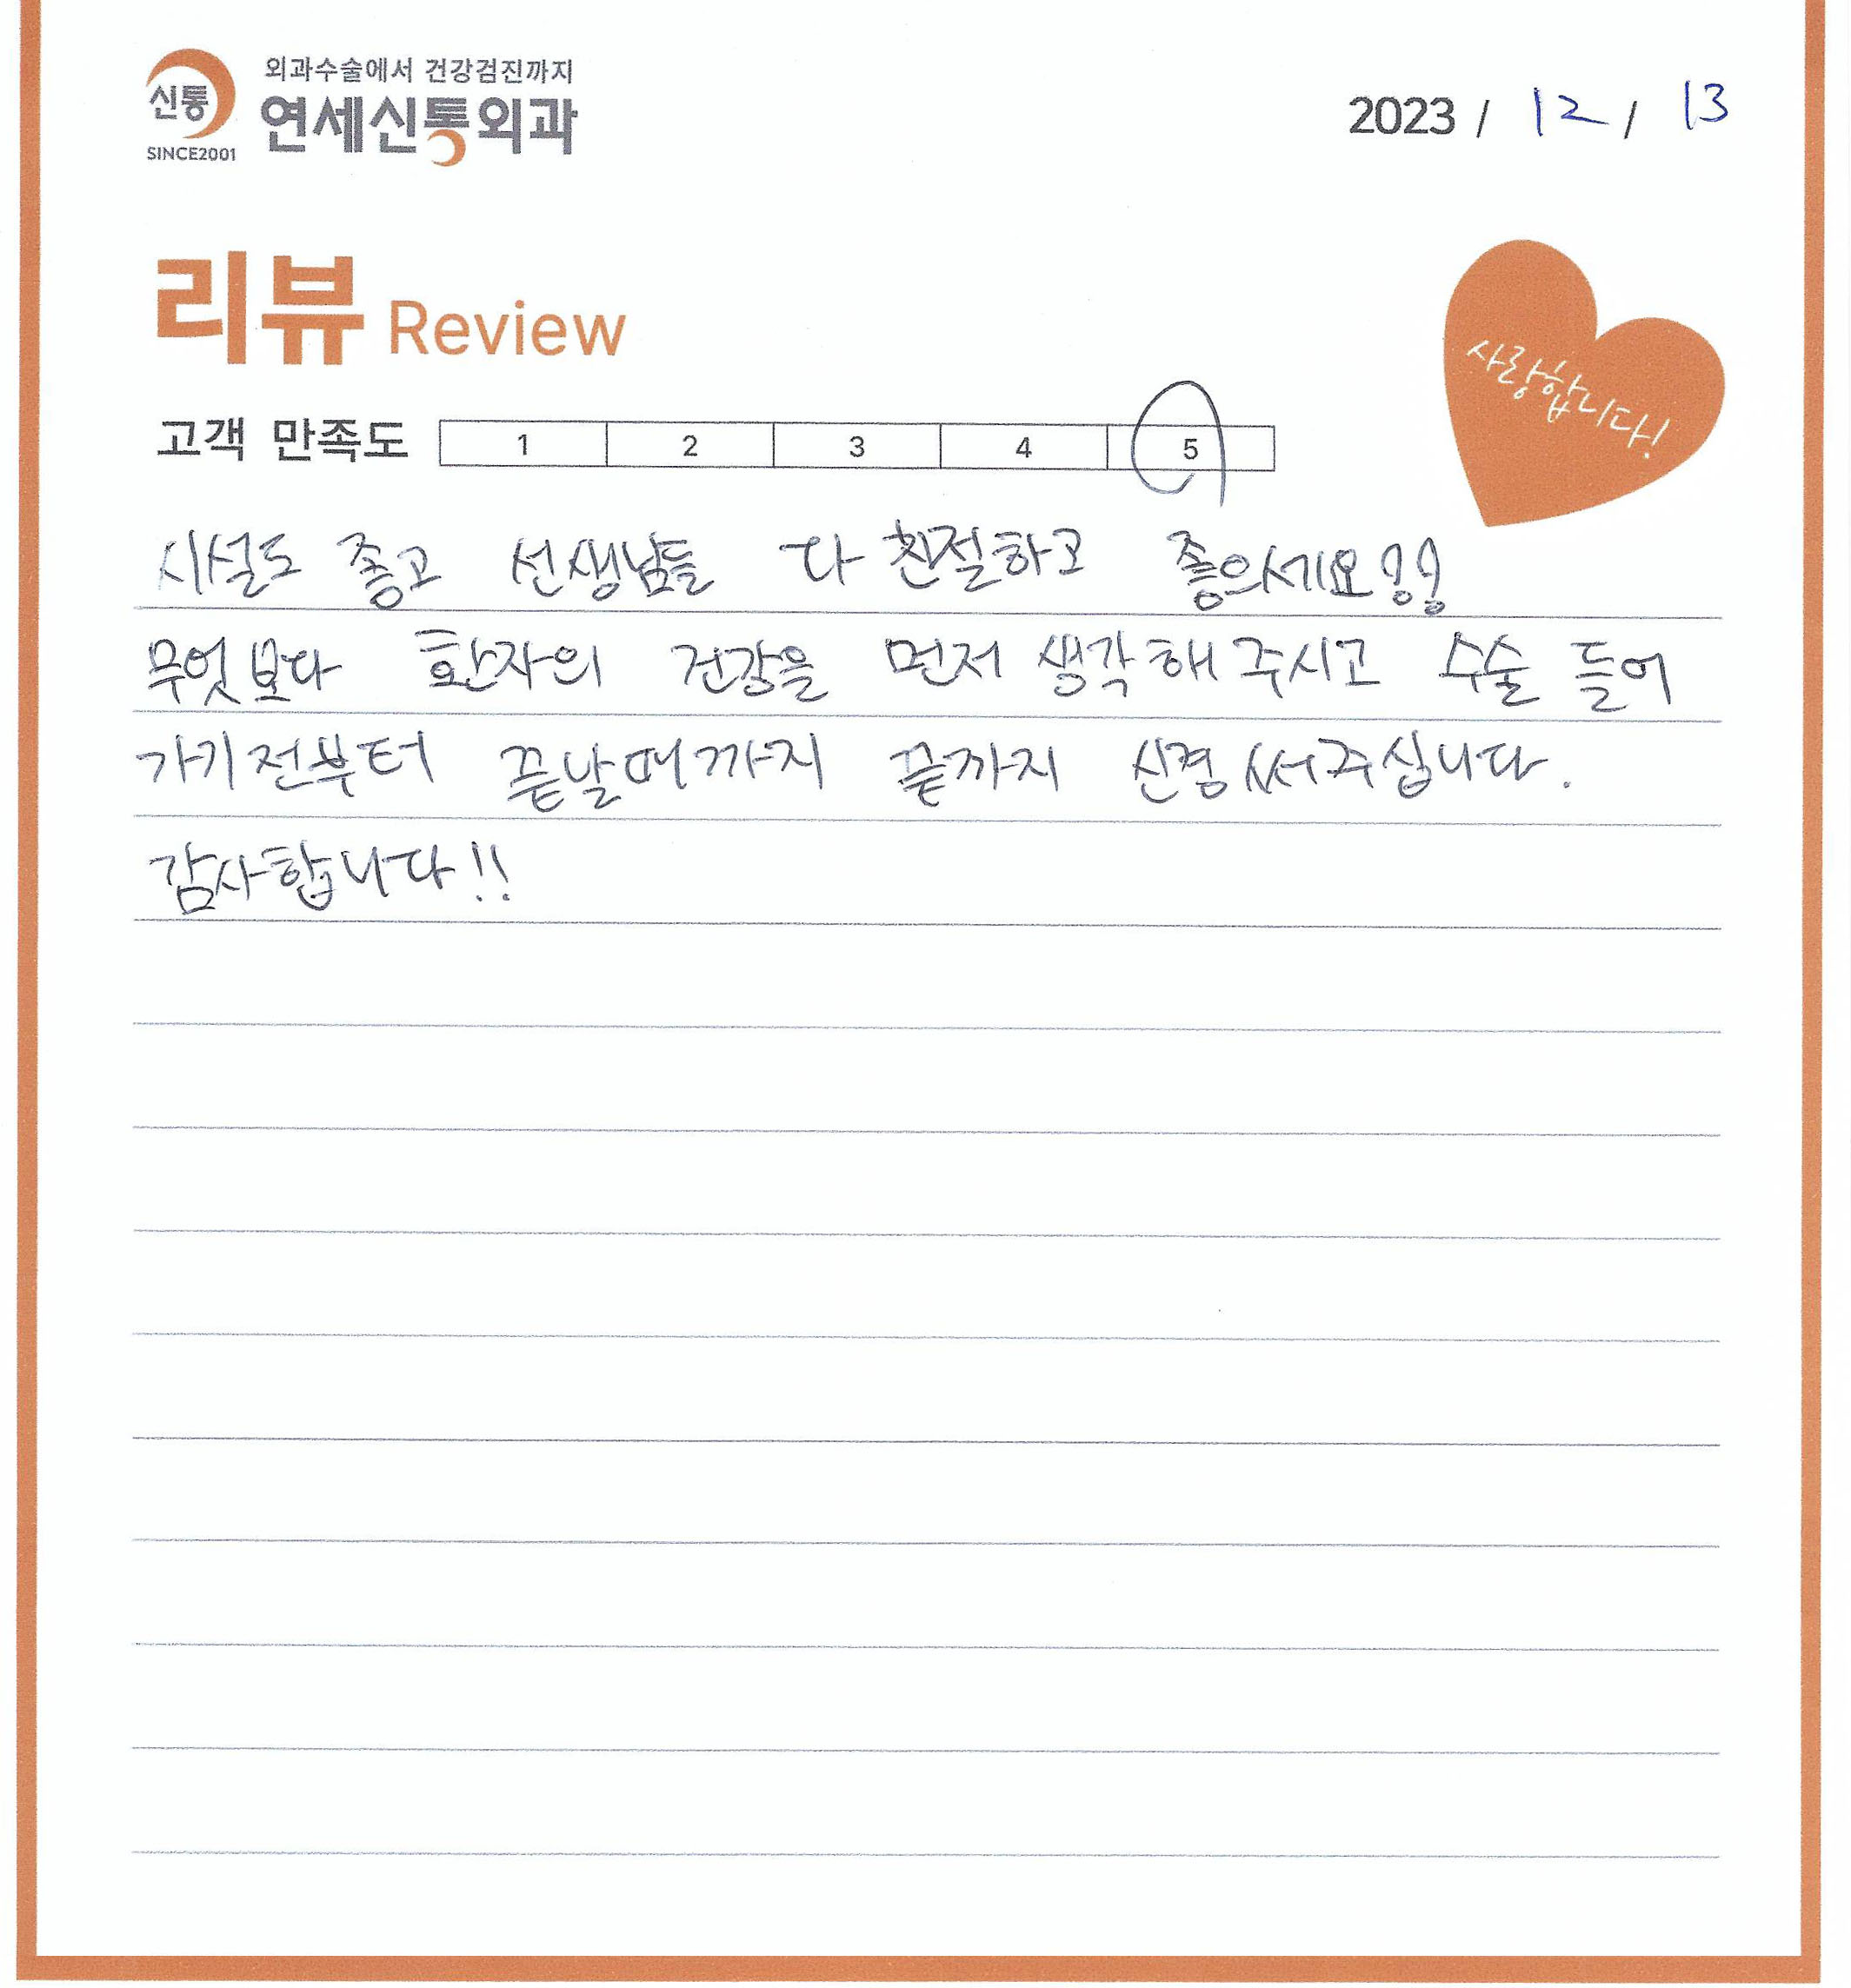 신통
SINCE2001
외과수술에서 건강검진까지
연세신통외과
2023 / 12 / 13
리뷰 Review
사랑합니다!
고객 만족도 1 2 3 4 5
시설도 좋고 선생님들 다 친절하고 좋으세요!!
무엇보다 환자의 건강을 먼저 생각해 주시고 수술 들어
가기 전부터 끝날때까지 끝까지 신경써주십니다.
감사합니다!!